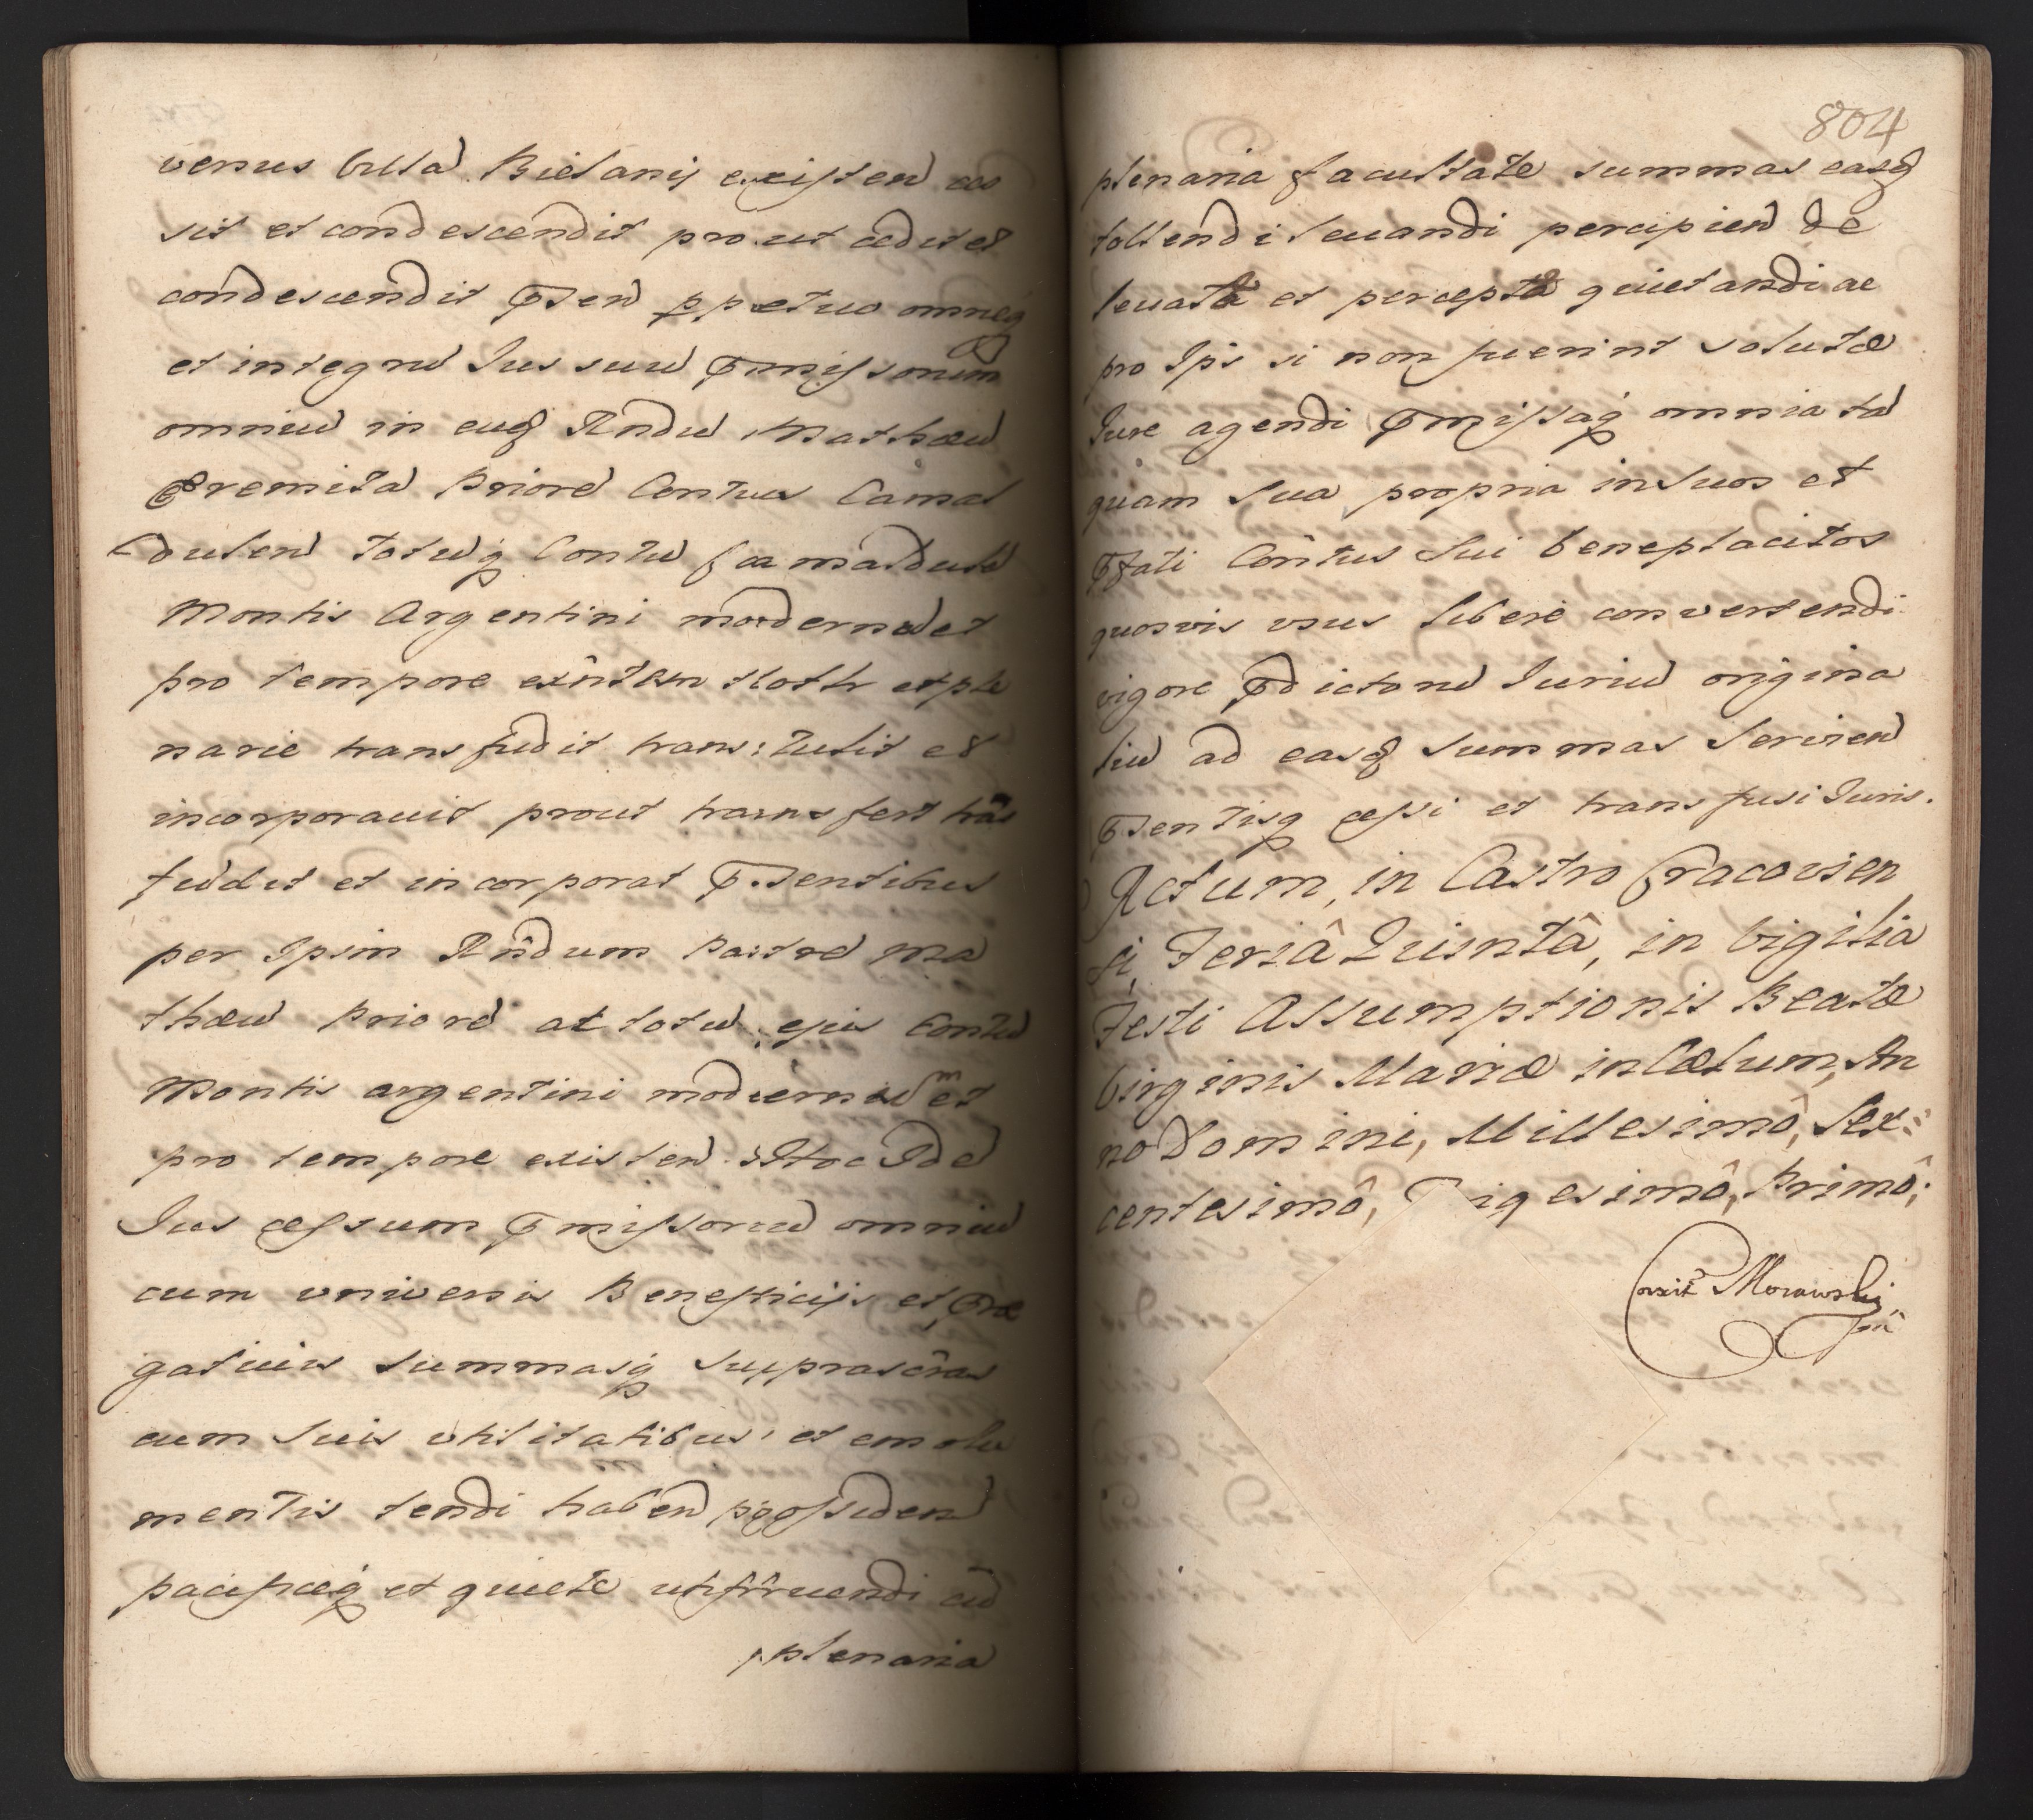 versus villã Bielanij existen ces
sit et condescendit prout cedit et
condescendit p̃sen ppetuo omneq
et integrũ Jus suũ p̃missorum
omniũ in euq Rñdũ Mathæũ
Eremitã Priorẽ Contus Camal
dulen totuq Contũ Camaldulẽ
Montis Argentini modernũ et
pro tempore exñtem et ple
narie transfudit trans: tulit et
incorporauit prout transfert trãs
fudit et incorporat p̃sentibus
per Ipsm Rñdum Patrẽ Ma
thæũ Priorẽ ac totũ ejus Contũ
Montis argentini modernũ et
pro tempore existen Hoc Idẽ
Jus cessum p̃missorũ omniũ
cum vniversis Beneficijs et præ
gatiuis summasq suprascrãs
cum suis vtilitatibus et emolu
mentis tendi haben possiden
pacificeq et quiete utifruendi cũ
plenaria
804
plenaria facultate summas easq
tollendi leuandi percipien de
leuatis et perceptis quietandi ac
pro Ipis si non fuerint solutæ
Jure agendi p̃missaq omnia tã
quam sua propria in suos et
p̃fati Contus sui beneplacitos
quosvis vsus libere convertendi
vigore p̃dictorũ Juriũ origina
liũ ad easq summas servien
p̃sentisq cessi et transfusi Juris.
Actum, in Castro Cracovien
si, Feriâ Quintâ, in Vigilia
Festi Assumptionis Beatæ
Virginis Mariæ in Cælum, An
no Domini, Millesimô, Sex:
centesimô, Trigesimô, Primô;
Corxit Morawski
mp